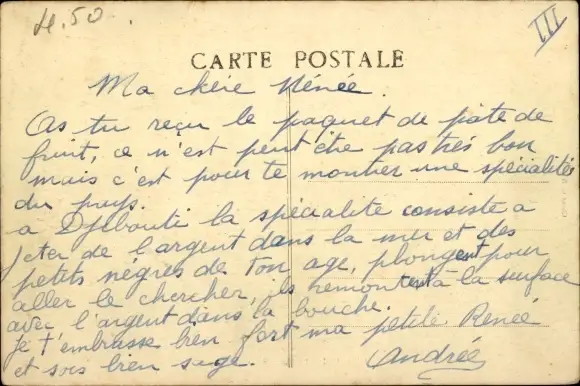 4.50.
III
CARTE POSTALE
Ma chére Rénée.
As tu reçu le paquet de pâte de
fruit, ce n'est peut être pas très bon
mais c'est pour te montrer une spécialités
du pays.
a Djibouti la spécialite consiste a
jeter de l'argent dans la mer et des
petits nègres de ton age, plongent pour
aller le chercher, ils remontent à la surface
avec l'argent dans la bouche.
je t'embrasse bien fort ma petite Renée
et sois bien sage. Andrée